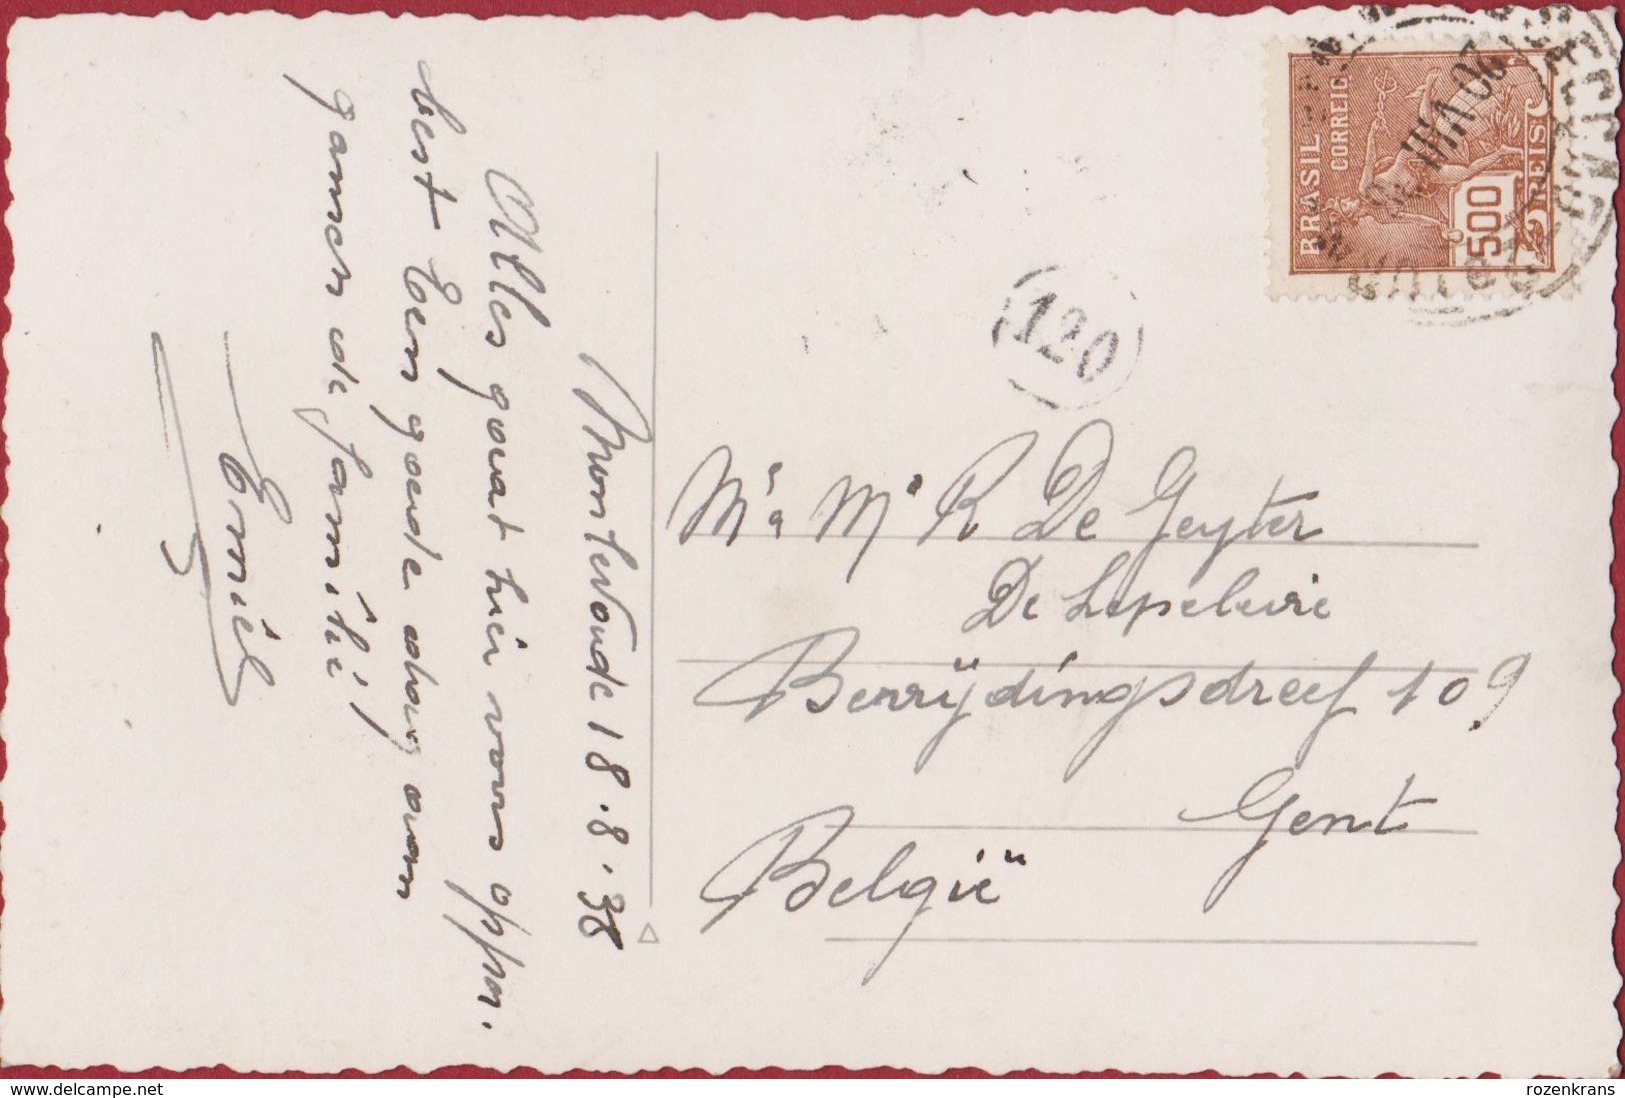 Montevoude 18.8.'38
Alles gaat hier voors oppr.
best Een goede dhang aan
gansch de familie!
Emiel
BRASIL
CORREIO
500
REIS
120
Mr & Me R De Geyter
De Lepeleire
Bevrijdingsdreef 109
Gent
België
www.delcampe.net
rozenkrans